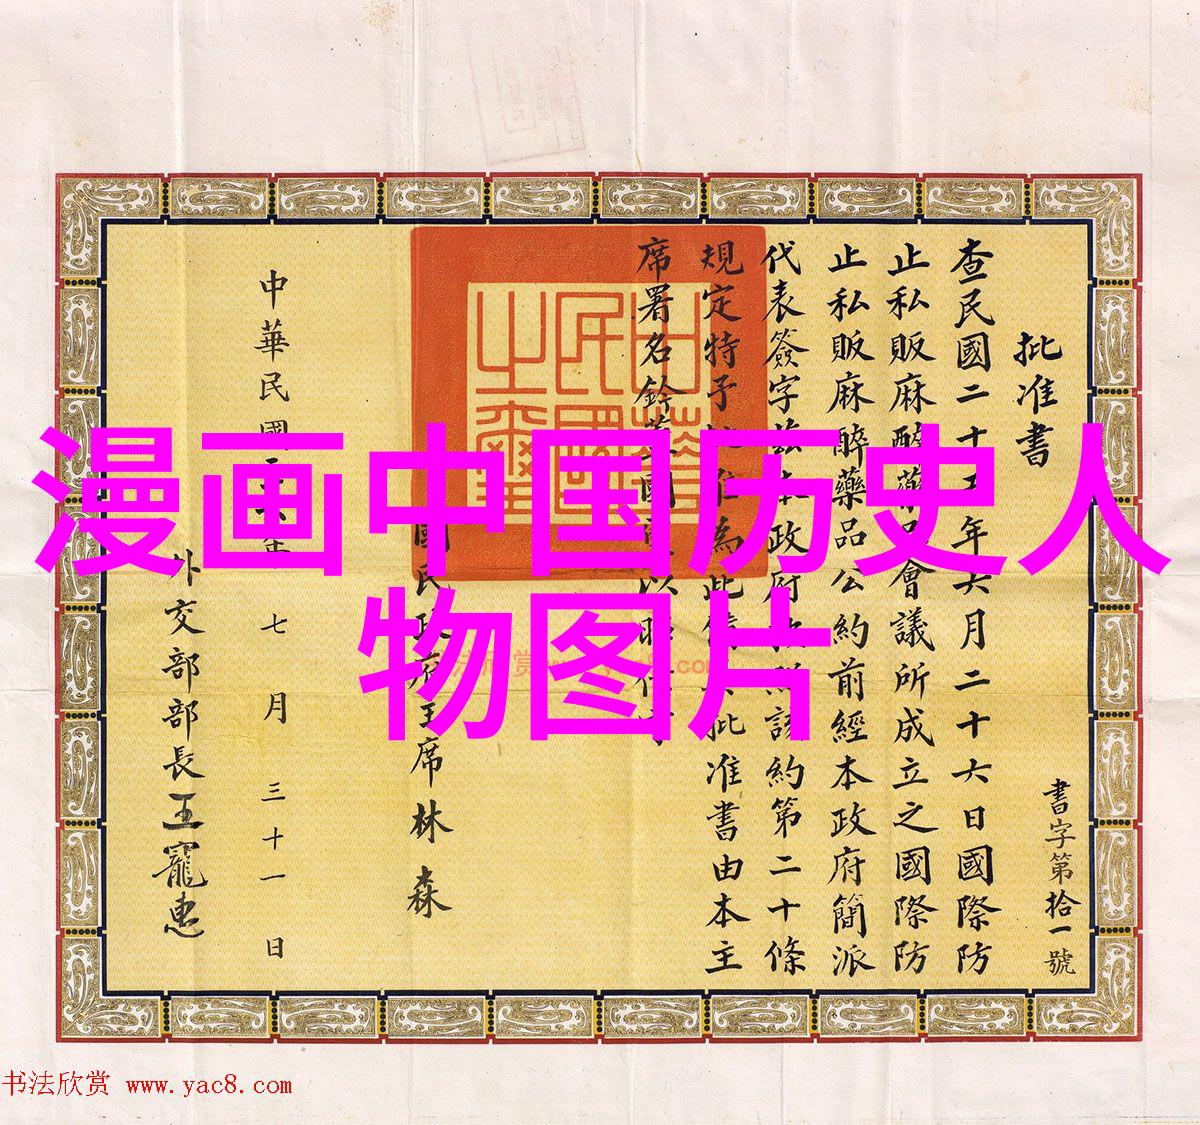 漫画中国历史人
物图片
批准書
查民國二十五年六月二十六日國際防
止私販麻醉藥品會議所成立之國際防
止私販麻醉藥品公約前經本政府簡派
代表簽字茲本政府依照該約第二十條
規定特予批准為此備具批准書由本主
席署名鈐蓋國璽以昭信守
國民政府主席林森
外交部部長王寵惠
中華民國二十六年七月三十一日
書字第拾一號
中華民國之璽
书法欣赏 www.yac8.com